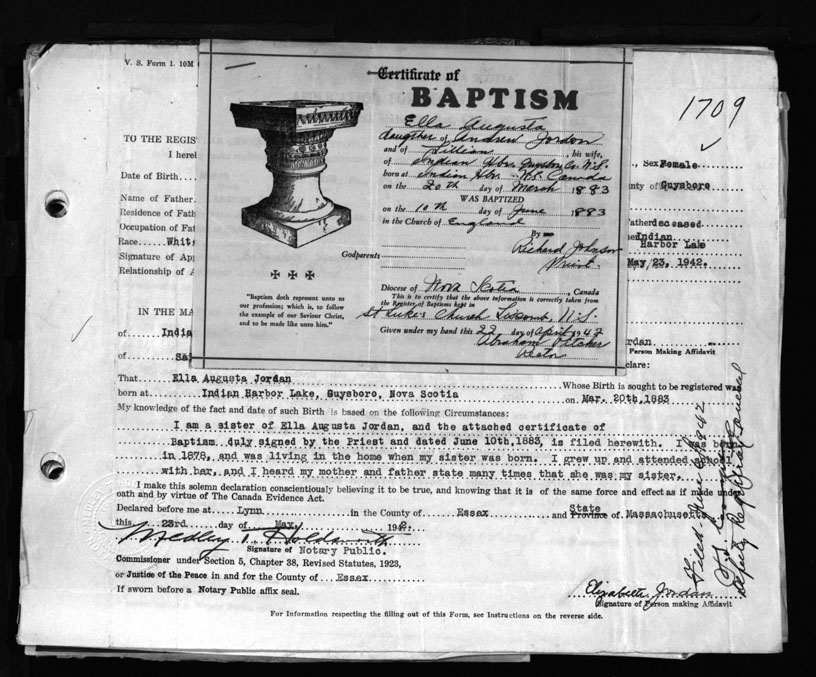 V. S. Form 1. 10M
1709
TO THE REGIS
I herel
, Sex Female
Date of Birth
nty of Guysboro
Name of Father
Residence of Fath
ather deceased
Occupation of Fat
Indian
Harbor Lake
Race White
Signature of App
May 23, 1942.
Relationship of A
IN THE MA
of India
rdan
Person Making Affidavit
of
lare:
Certificate of
BAPTISM
Ella Augusta
daughter of Andrew Jordon
and of Lillian, his wife,
of Indian Hbr. Guysboro Co. N.S.
born at Indian Hbr N.S. Canada
on the 20th day of March 1883
WAS BAPTIZED
on the 10th day of June 1883
in the Church of England
By me
Richard Johnson
Priest.
Godparents
Diocese of Nova Scotia, Canada
This is to certify that the above information is correctly taken from
the Register of Baptisms kept in
St Luke's Church Liscomb, N.S.
Given under my hand this 22 day of April 1942
Abraham Pitcher
Rector
"Baptism doth represent unto us
our profession; which is, to follow
the example of our Saviour Christ,
and to be made like unto him."
That Ella Augusta Jordan Whose Birth is sought to be registered was
born at Indian Harbor Lake, Guysboro, Nova Scotia on Mar. 20th, 1883
My knowledge of the fact and date of such Birth is based on the following Circumstances:
I am a sister of Ella Augusta Jordan, and the attached certificate of
Baptism duly signed by the Priest and dated June 10th, 1883, is filed herewith. I was born
in 1878, and was living in the home when my sister was born. I grew up and attended school
with her, and I heard my mother and father state many times that she was my sister.
I make this solemn declaration conscientiously believing it to be true, and knowing that it is of the same force and effect as if made under
oath and by virtue of The Canada Evidence Act.
Declared before me at Lynn in the County of Essex State and Province of Massachusetts
this 23rd day of May 1942.
Medley T. Holdsworth
Signature of Notary Public.
Commissioner under Section 5, Chapter 38, Revised Statutes, 1923,
or Justice of the Peace in and for the County of Essex
If sworn before a Notary Public affix seal.
Elizabeth Jordan
Signature of Person making Affidavit
For Information respecting the filling out of this Form, see Instructions on the reverse side.
Filed June 1942
Deputy Registrar General